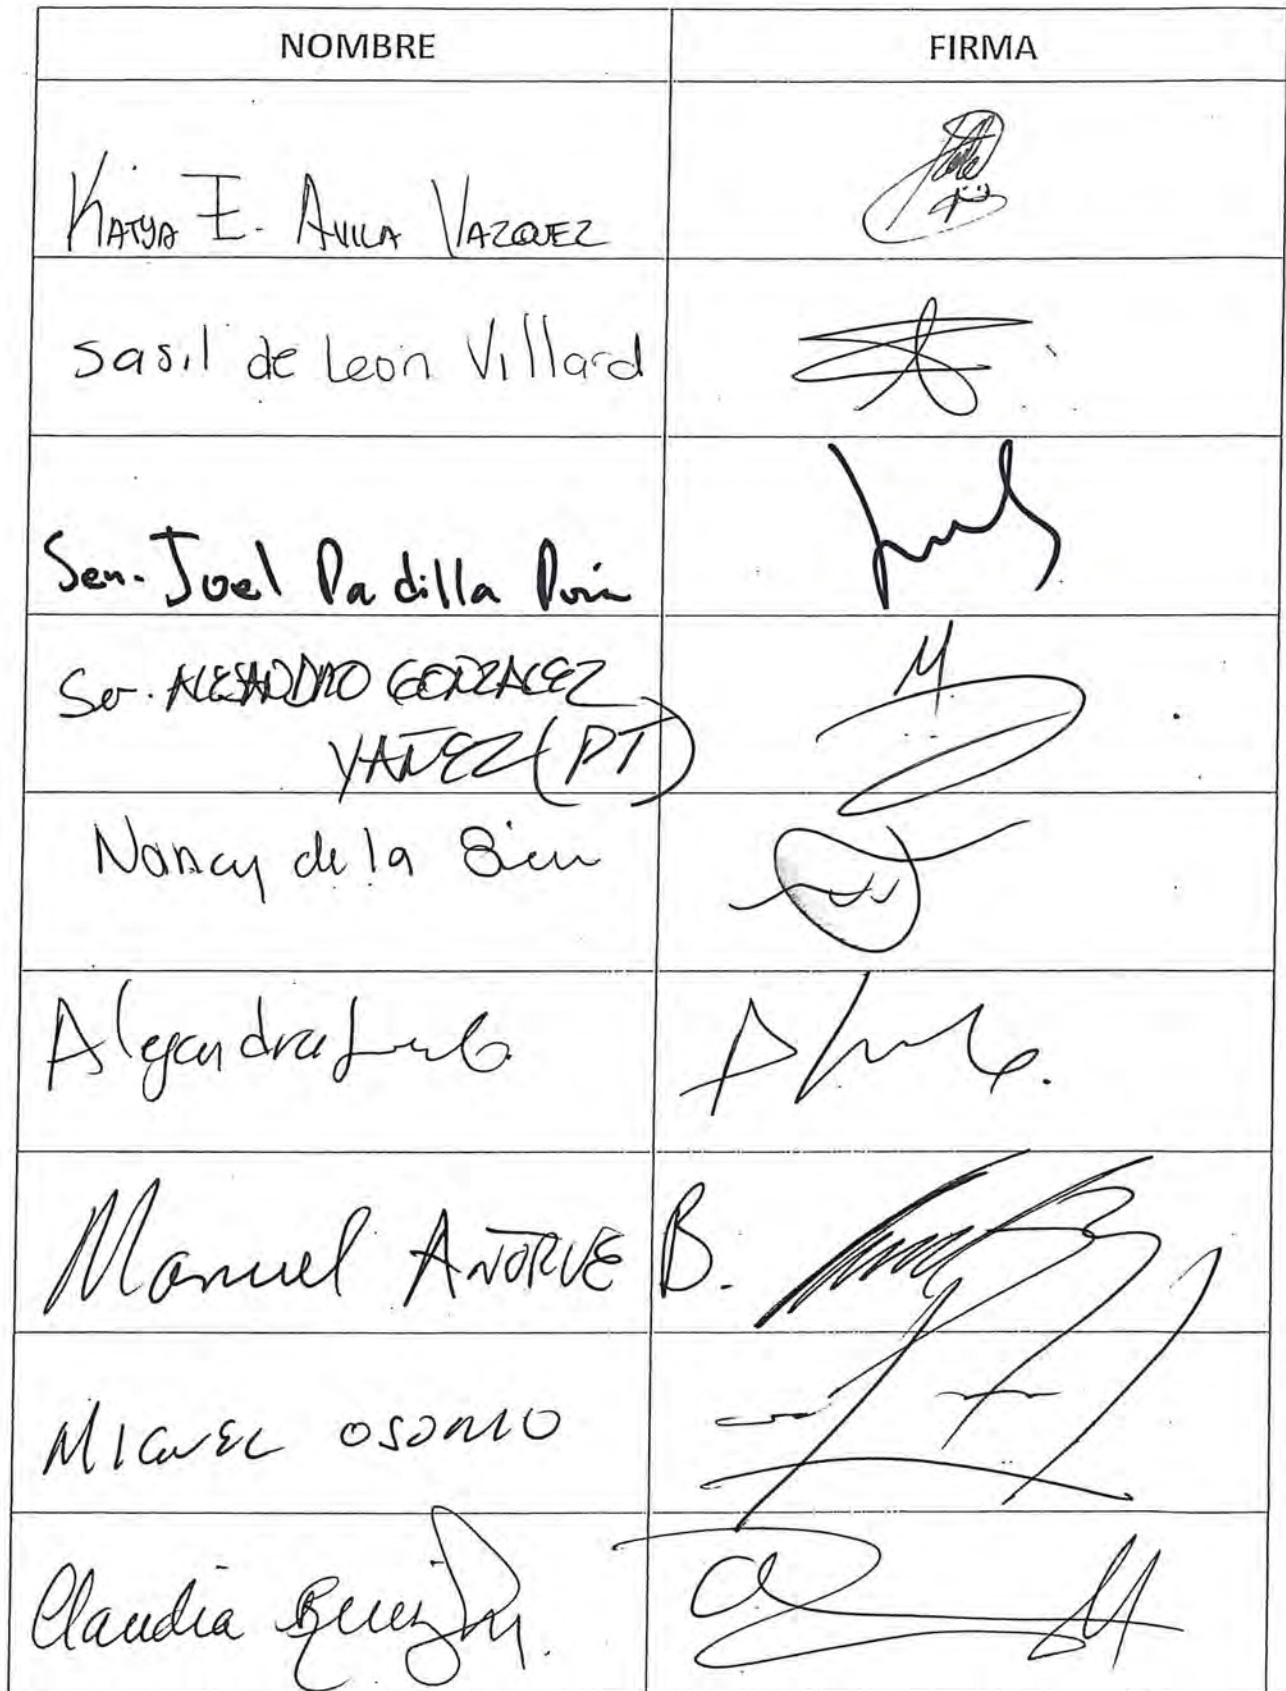 NOMBRE FIRMA
KATYA E. AVILA VAZQUEZ
Sasil de León Villard
Sen. Joel Padilla
Sen. ALEJANDRO GONZALEZ
YAÑEZ (PT)
Nancy de la
Alejandra
Manuel AÑORVE B.
MIGUEL OSORIO
Claudia